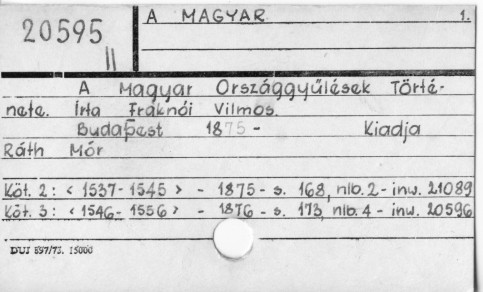 20595
II
A MAGYAR 1.
A Magyar Országgyűlések Törté-
nete. Írta Fraknói Vilmos.
Budapest 1875 - Kiadja
Ráth Mór
Köt. 2: < 1537-1545 > - 1875 - s. 168, nlb. 2 - inw. 21089
Köt. 3: < 1546-1556 > - 1876 - s. 173, nlb. 4 - inw. 20596
DUJ 897/73. 15000